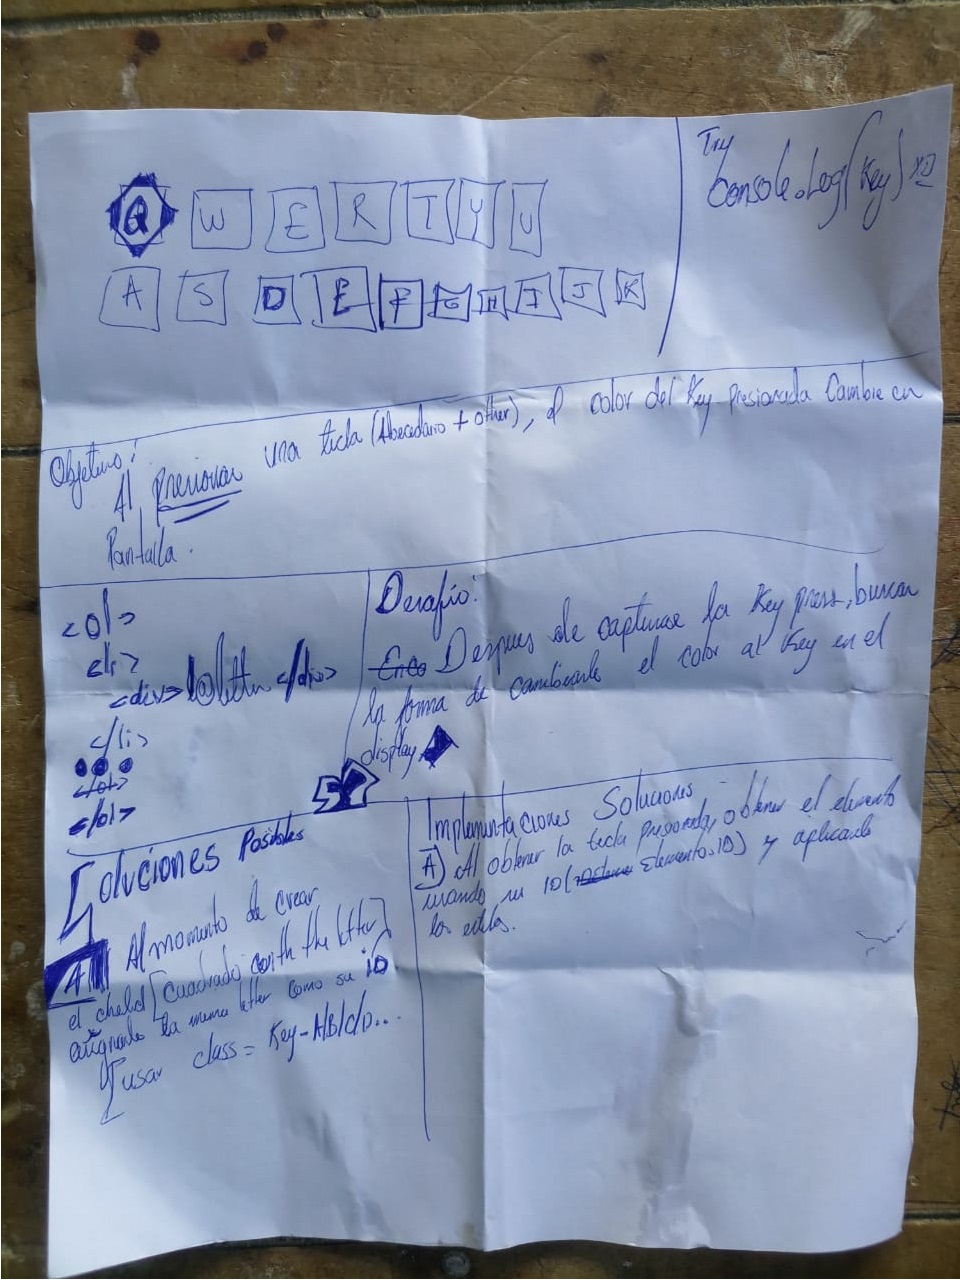 Q W E R T Y U
A S D E F G H I J K
Try
Console.Log(Key) XD
Objetivo:
Al presionar una tecla (Abecedario + other), el color del Key presionada Cambie en
Pantalla.
<ol>
<li>
<div> l@letter </div>
</li>
</ol>
</ol>
Desafio:
Despues de capturar la Key press, buscar
la forma de cambiarle el color al Key en el
display
Soluciones Posibles
A Al momento de crear
el [Cuadrado with the letter]
asignarle la misma letter como su iD
usar class = Key-A/B/C/D...
Implementaciones Soluciones
A) Al obtener la tecla presionada, obtener el elemento
usando su ID( Elemento.ID) y aplicando
los estilos.